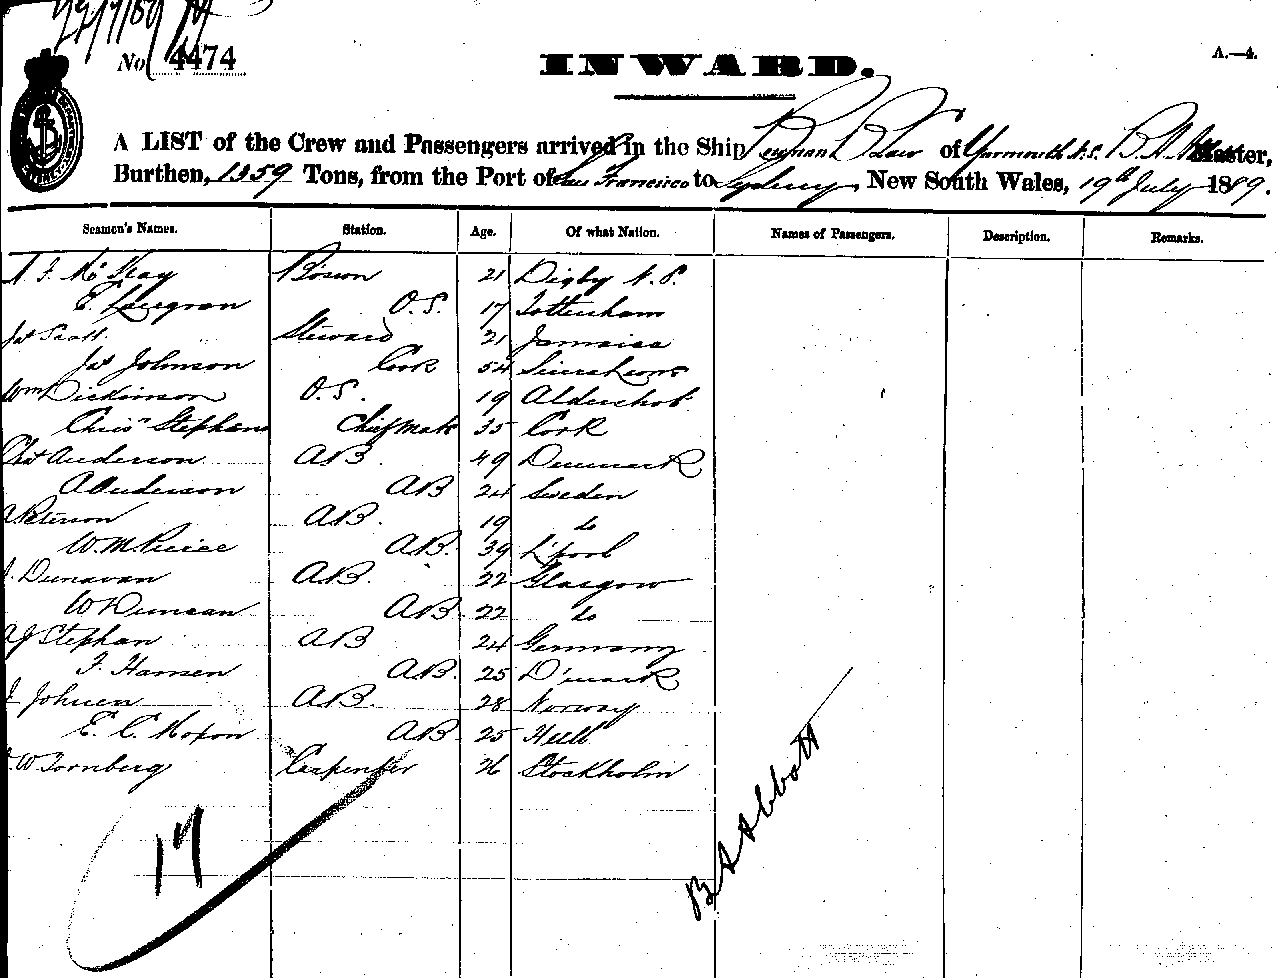 No. 4474
INWARD.
A.—4.
A LIST of the Crew and Passengers arrived in the Ship Bowman B Law of Yarmouth N.S. B. A. Master,
Burthen, 1359 Tons, from the Port of San Francisco to Sydney, New South Wales, 19th July 1889.
Seamen's Names. Station. Age. Of what Nation. Names of Passengers. Description. Remarks.
McKay Bosun 21 Digby N.S.
E. O.S. 17 Tottenham
Jas Scott Steward 21 Jamaica
Jas Johnson Cook 54 Siera Leone
Wm Dickinson O.S. 19 Aldershot
Chris Stephens Chief Mate 35 Cork
Chas Anderson AB 49 Denmark
A Anderson AB 24 Sweden
A Peterson AB. 19 do
W. M. Peirce AB. 39 L'pool
J. Dunavan AB. 22 Glasgow
W Duncan AB. 22 do
A J Stephan AB 24 Germany
F. Hansen AB. 25 D'mark
J Johnsen AB. 28 Norway
E. C. Moxon AB 25 Hull
W Tornberg Carpenter 26 Stockholm
17
B A Abbott